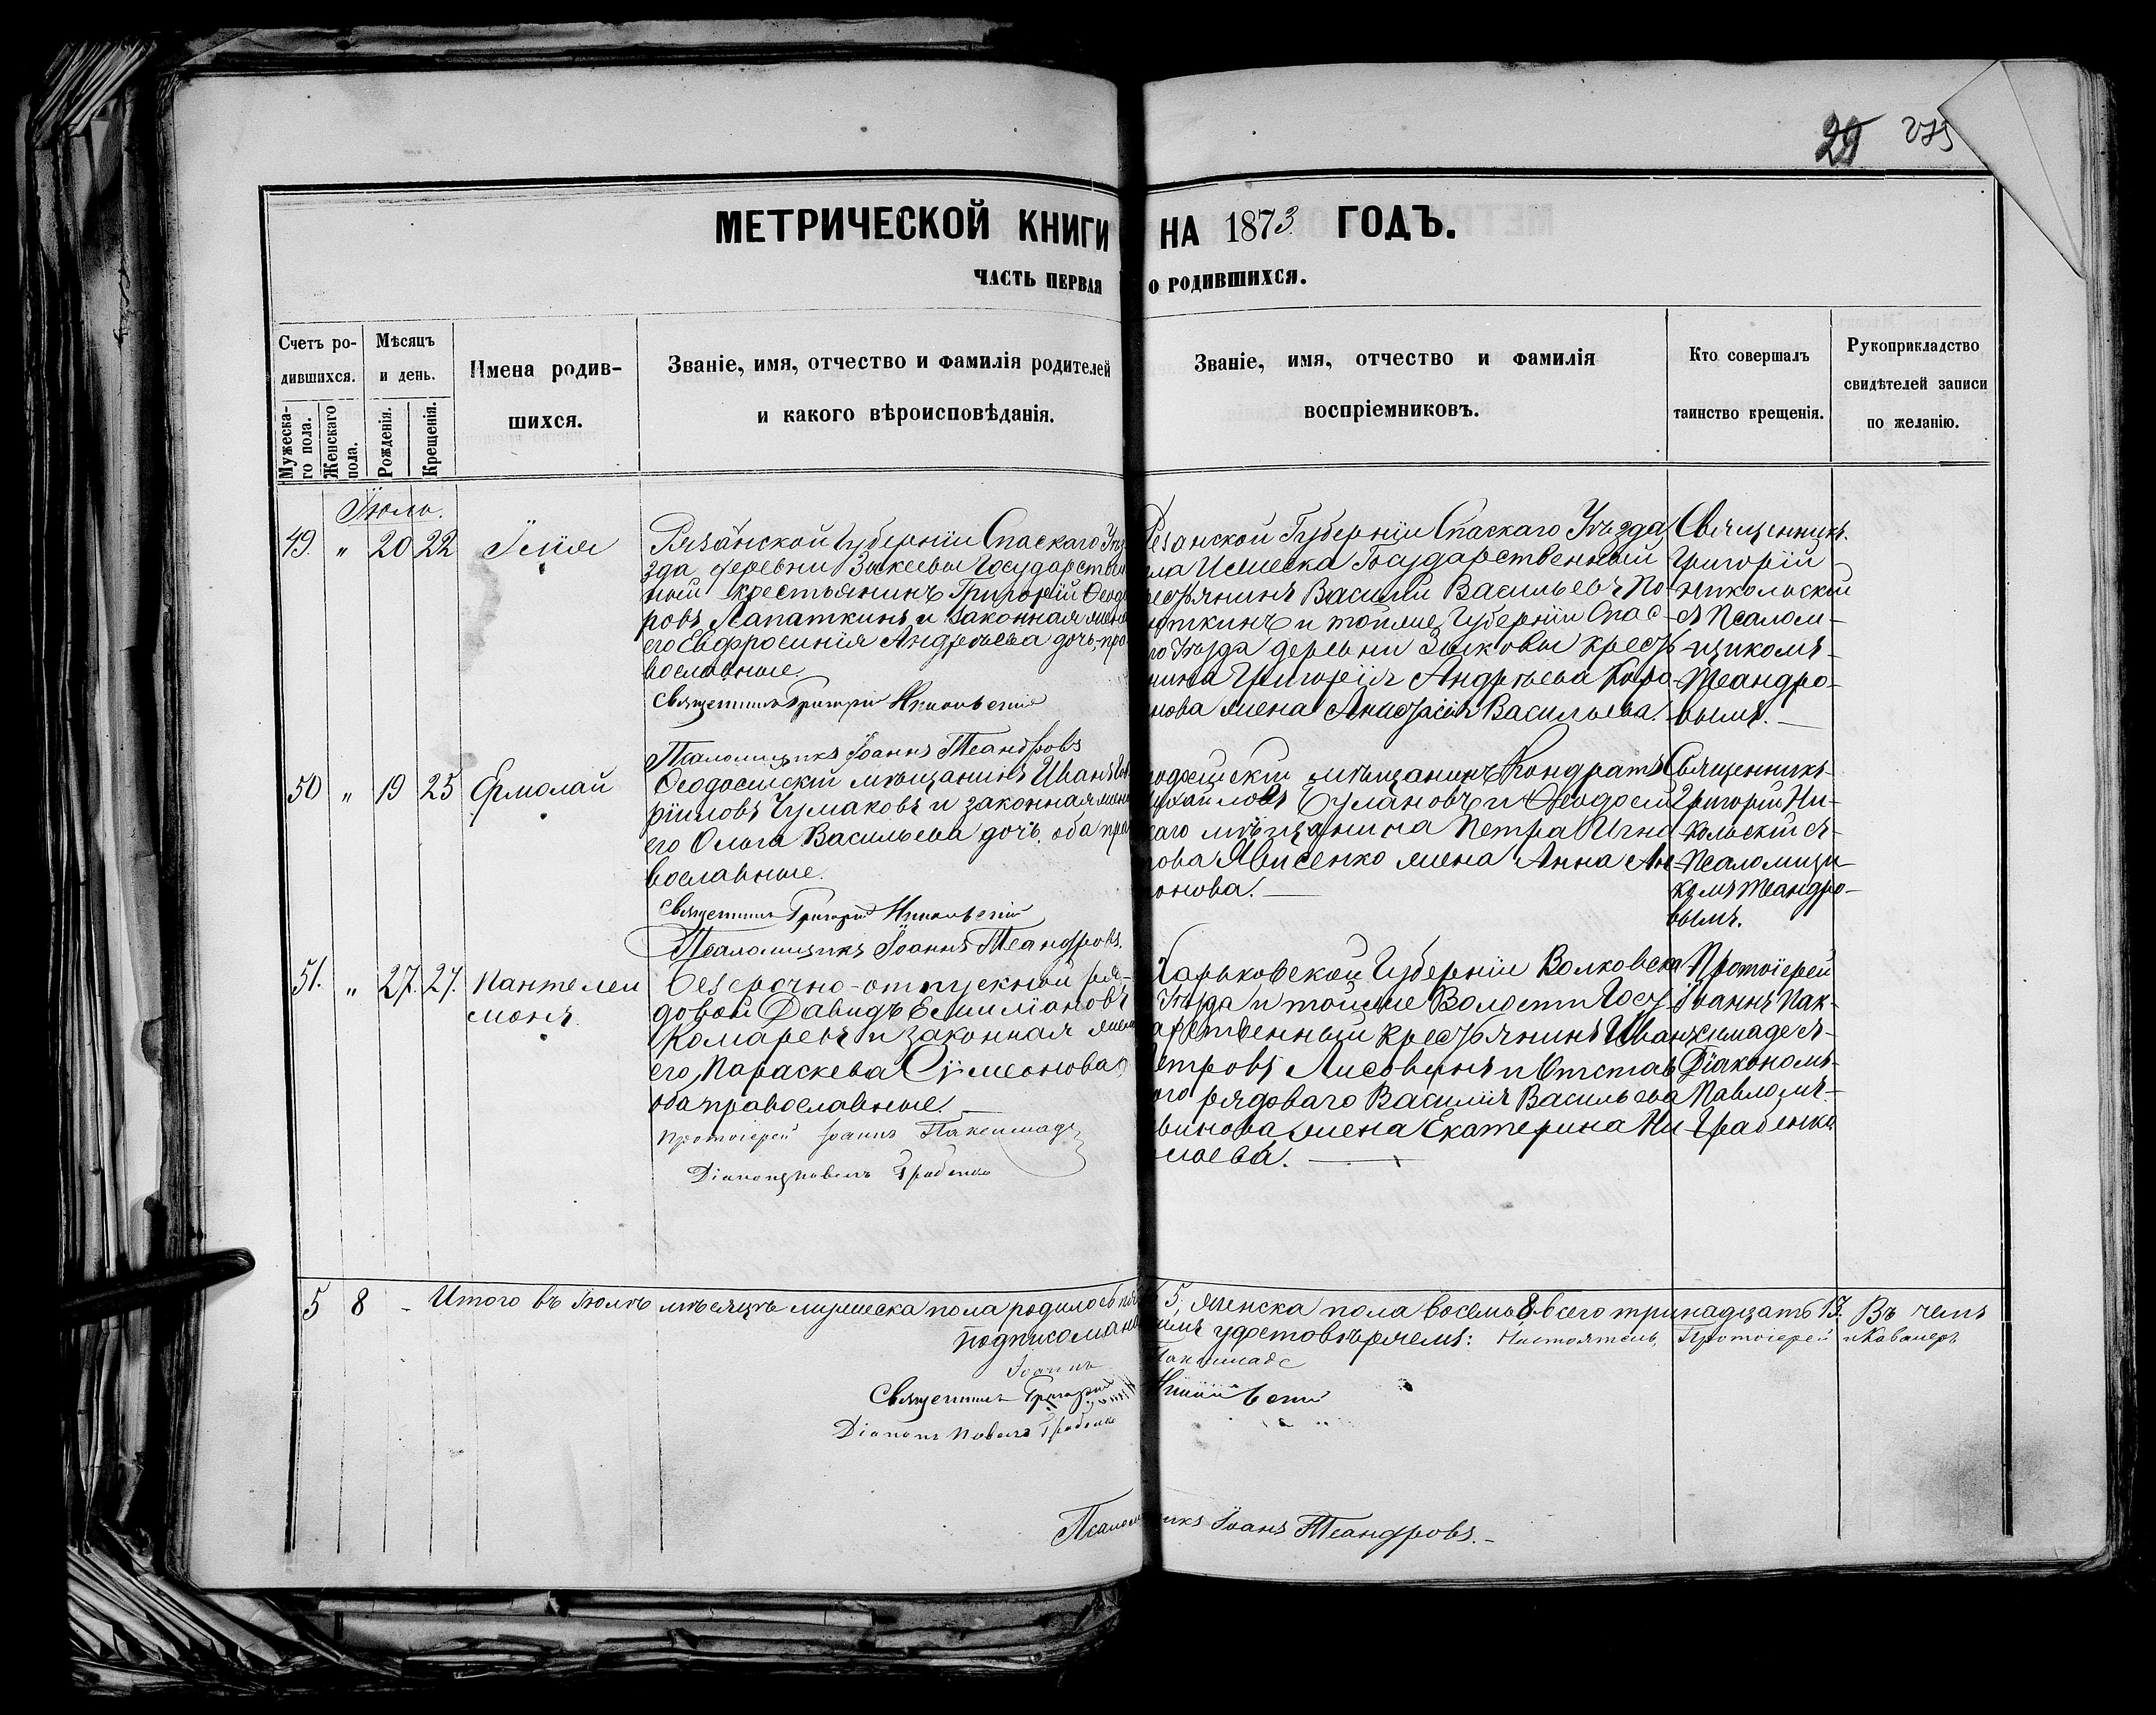 29 275
МЕТРИЧЕСКОЙ КНИГИ НА 1873 ГОДЪ.
ЧАСТЬ ПЕРВАЯ О РОДИВШИХСЯ.
Счетъ ро-
дившихся.
Мужеска-
го пола.
Женскаго
пола.
Мѣсяцъ
и день.
Рожденія.
Крещенія.
Имена родив-
шихся.
Званіе, имя, отчество и фамилія родителей
и какого вѣроисповѣданія.
Званіе, имя, отчество и фамилія
воспріемниковъ.
Кто совершалъ
таинство крещенія.
Рукоприкладство
свидѣтелей записи
по желанію.
Іюль.
49. " 20 22 Илія
Рязанской Губерніи Спаскаго Уѣ
зда деревни Государствен
ный крестьянинъ Григорій Ѳеодо
ровъ Лапаткинъ и законная жена
его Евфросинія Андреева дочь, пра
вославные.
Священникъ Григорій Никольскій
Псаломщикъ Іоаннъ Теандровъ
Резанской Губерніи Спаскаго Уѣзда
ла Ижеска Государственный
рестьянинъ Василій Васильевъ Ло-
паткинъ и тойже Губерніи Спас-
го Уѣзда деревни кресть
нина Григорія Андреева
нова жена Анастасія Васильева.
Священникъ
Григорій
Никольскій
съ Псалом-
щикомъ
Теандро-
вымъ.
50 " 19 25 Ермолай
Ѳеодосійскій мѣщанинъ Иванъ
риловъ Чумаковъ и законная жена
его Ольга Васильева дочь, оба пра
вославные.
Священникъ Григорій Никольскій
Псаломщикъ Іоаннъ Теандровъ.
одосійскій мѣщанинъ Кондратъ
ихайловъ Булановъ и Ѳеодосій
каго мѣщанина Петра Игна
това жена Анна Ан-
онова.
Священникъ
Григорій Ни-
кольскій съ
Псаломщи-
комъ Теандро-
вымъ.
51. " 27. 27. Пантелеи
монъ
Безсрочно-отпускной ря-
довой Давидъ Емиліановъ
Комаревъ и законная жена
его, Параскева Сѵмеонова,
оба православные.
Протоіерей Іоаннъ Паксимаде
Діаконъ Павелъ Грабенко
Харьковской Губерніи Волковска
Уѣзда и тойже Волости Госу
арственный крестьянинъ Иванъ
етровъ Лисовинъ и Отстав
ого рядоваго Василія Васильева
винова жена Екатерина Ни
лаева.
Протоіерей
Іоаннъ Пак-
симаде съ
Діакономъ
Павломъ
Грабенко
5 8 - Итого въ Іюлѣ мѣсяцѣ мужеска пола родилось пять 5, женска пола восемь 8 всего тринадцать 13. Въ чемъ
подписом удостовѣряемъ: Настоятель, Протоіерей и Кавалеръ
Іоаннъ Паксимаде
Священникъ Григорій Никольскій
Діаконъ Павелъ Грабенко
Псаломщикъ Іоаннъ Теандровъ.